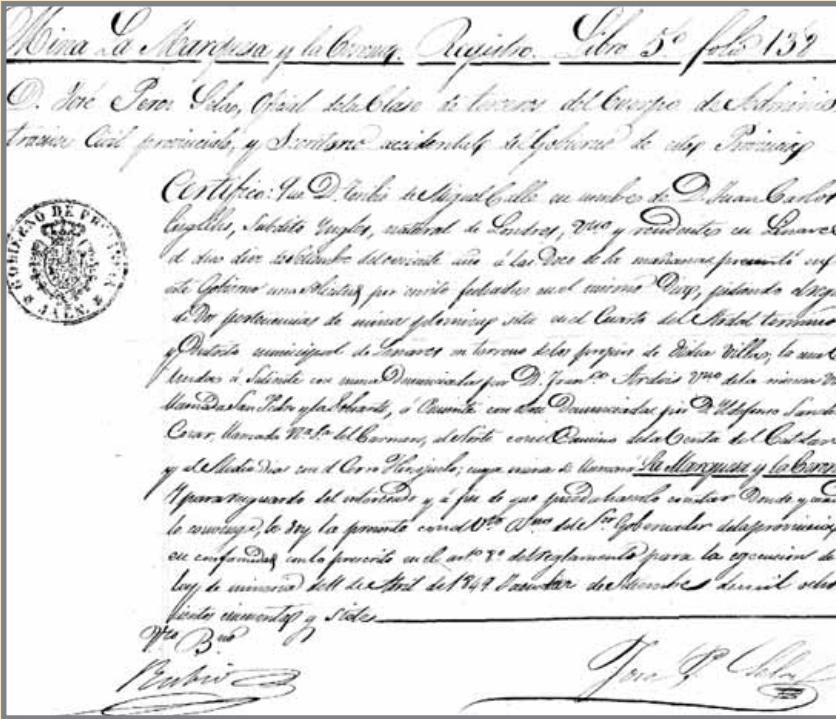 Mina La Marquesa y la Corona. Registro. Libro 5º folio 138
D. José Perez Selas, Oficial de la Clase de terceros del Cuerpo de Adminis
tracion Civil provincial, y Secretario accidental del Gobierno de esta Provincia
Certifico: Que D. de Miguel Calle en nombre de D. Juan Carlos
Subdito Yngles, natural de Londres, y residente en Linares
el dia diez de del corriente año á las doce de la mañana presentó en
este Gobierno una solicitud por escrito fechada en el mismo Dia, pidiendo
de Dos pertenencias de mina plomiza sita en el Cuarto del termino
y Distrito municipal de Linares en terreno de los propios de dicha Villa; la
á Saliente con mina Denunciada por D. Franco. vno de la misma
llamada San Pedro y á Poniente con otra Denunciada por D. Yldefonso
llamada Na. Sa. del Carmen, al Norte con el Camino de la Venta del
y al Mediodia con el Cerro cuya mina se llamará La Marquesa y la Corona
Y para resguardo del interesado y á fin de que pueda hacerlo constar Donde y
le convenga, le doy la presente con el Vto. Bno. del Sor. Gobernador de la provincia
en conformidad con lo prescrito en el arto. 8º del reglamento para la egecucion de
ley de mineria del 11 de Abril de 1849. de mil ocho
cientos cincuenta y siete
Vto. Bno.
Rubio
José P. Selas
GOBIERNO DE PROVINCIA
JAEN